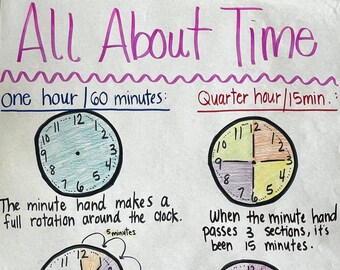 All About Time
One hour/60 minutes:
Quarter hour/15min.:
11 12 1
10 2
9 3
8 4
7 6 5
11 12 1
10 2
9 3
8 4
7 6 5
The minute hand makes a
full rotation around the clock.
When the minute hand
passes 3 sections, it's
been 15 minutes.
5 minutes
11 12
12